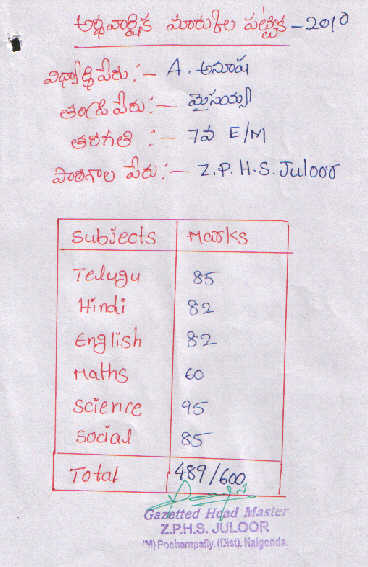 అర్థవార్షిక మారుకుల పట్టిక - 2010
విద్యార్థి పేరు :- A. అనూష
తండ్రి పేరు :- మైసయ్య
తరగతి :- 7వ E/M
పాఠశాల పేరు :- Z.P.H.S. Juloor
Subjects Marks
Telugu 85
Hindi 82
English 82
Maths 60
Science 95
Social 85
Total 489/600
Gazetted Head Master
Z.P.H.S. JULOOR
(M) Pochampally, (Dist). Nalgonda.